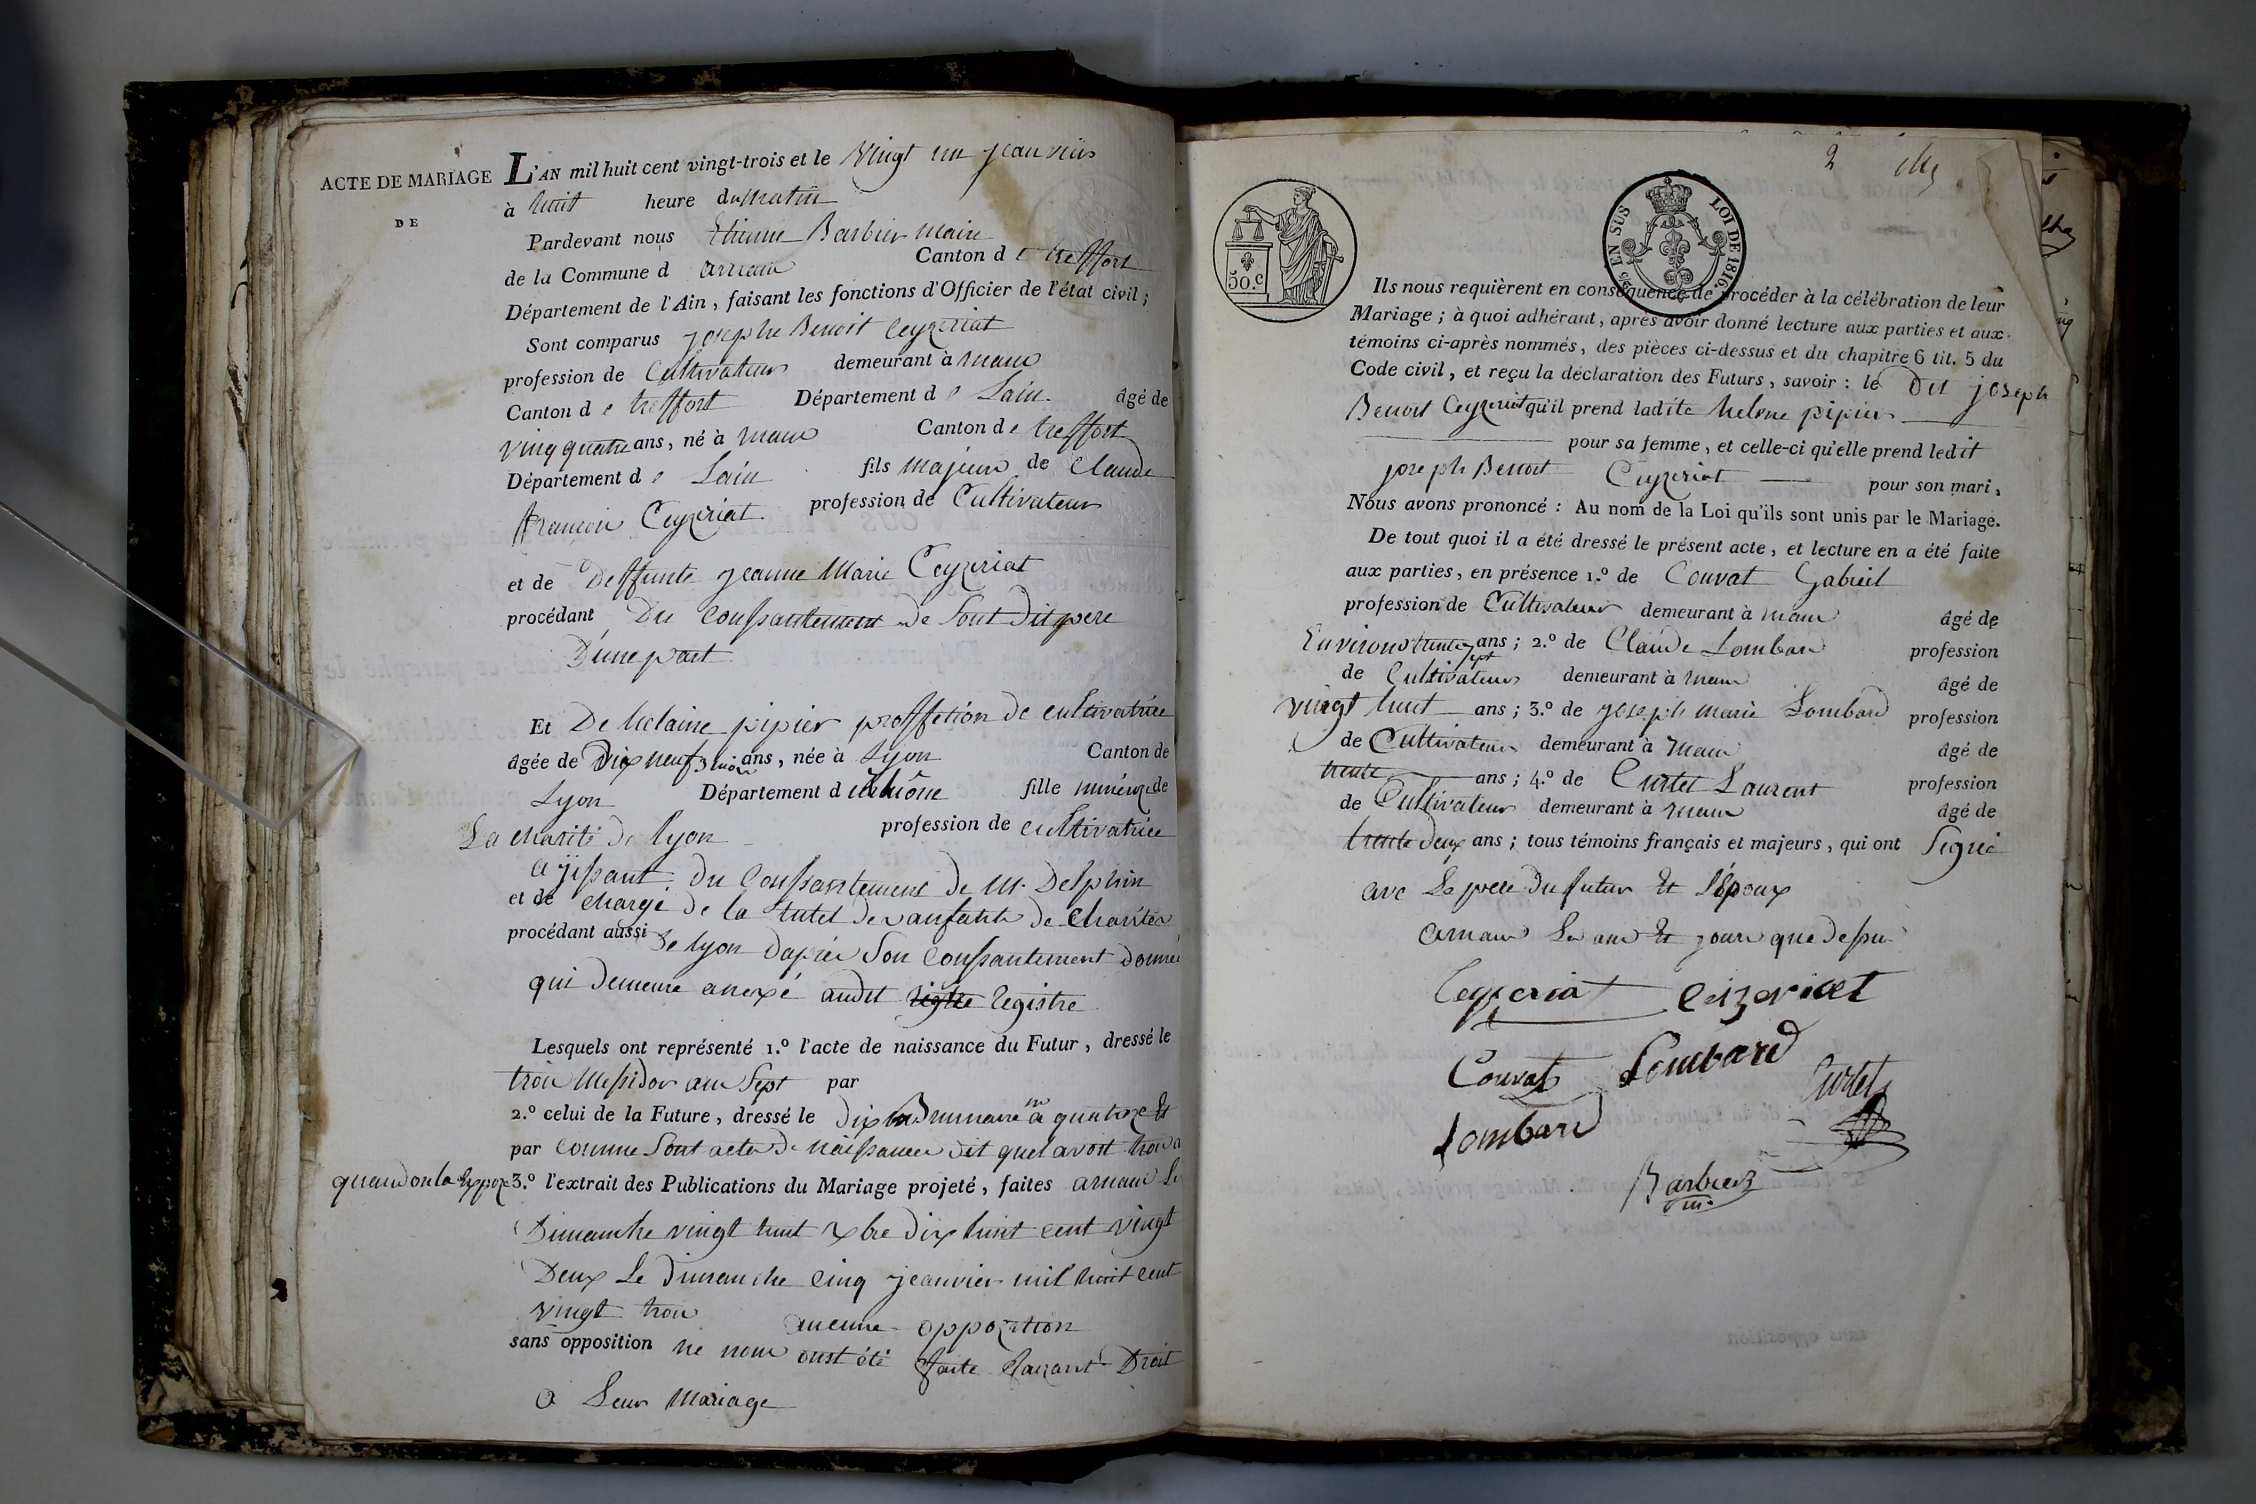 ACTE DE MARIAGE
DE
L'AN mil huit cent vingt-trois et le vingt un jeanvier
à huit heure du matin
Pardevant nous Etienne Barbier maire
de la Commune d arnans Canton d e treffort
Département de l'Ain, faisant les fonctions d'Officier de l'état civil;
Sont comparus joseph Benoit Ceyzeriat
profession de Cultivateur demeurant à
Canton d e treffort Département d e Lain âgé de
vingt quatre ans, né à Canton d e treffort
Département d e Lain fils majeur de Claude
francois Ceyzeriat profession de Cultivateur
et de Deffunte jeanne Marie Ceyzeriat
procédant Du Conssantement de Sont Dit pere
D'une part
Et De helaine pipier proffetion de cultivatrice
âgée de Dix neuf 3 mois ans, née à Lyon Canton de
Lyon Département d u Rhône fille de
La charité de lyon profession de cultivatrice
ajissant Du Conssantement de M. Delphin
et de chargé de la tutel des anfants de Charités
procédant aussi de lyon dapres Son Conssantement donné
qui demeure anexé audit Registre
Lesquels ont représenté 1.º l'acte de naissance du Futur, dressé le
trois Messidor an Sept par
2.º celui de la Future, dressé le dix Brumaire an quatorze Et
par comme Sont acte de naissance dit quel avoit trois
quand on la Expoze 3.º l'extrait des Publications du Mariage projeté, faites arnans Le
Dimanche vingt huit xbre dix huit cent vingt
Deux Le dimanche cinq jeanvier mil huit cent
vingt trois aucune oppozition
sans opposition ne nous onst été faite Droit
a Leur Mariage
2
50.C
EN SUS LOI DE 1816
Ils nous requièrent en conséquence de procéder à la célébration de leur
Mariage; à quoi adhérant, après avoir donné lecture aux parties et aux
témoins ci-après nommés, des pièces ci-dessus et du chapitre 6 tit. 5 du
Code civil, et reçu la déclaration des Futurs, savoir: le Dit joseph
Benoit Ceyzeriat qu'il prend ladite helene pipier
pour sa femme, et celle-ci qu'elle prend ledit
joseph Benoit Ceyzeriat pour son mari,
Nous avons prononcé: Au nom de la Loi qu'ils sont unis par le Mariage.
De tout quoi il a été dressé le présent acte, et lecture en a été faite
aux parties, en présence 1.º de Couvat Gabriel
profession de Cultivateur demeurant à âgé de
Environs trente sept ans; 2.º de Claude Lombard profession
de Cultivateur demeurant à âgé de
vingt huit ans; 3.º de joseph marie Lombard profession
de Cultivateur demeurant à âgé de
trente ans; 4.º de Curtet Laurent profession
de Cultivateur demeurant à âgé de
trente deux ans; tous témoins français et majeurs, qui ont Signé
avec Le pere Du futur Et L'époux
arnans Les ans Et jours que dessus
Ceyzeriat Ceizeriat
Couvat Lombard
Curtet
Lombard
Barbier
m.
sans opposition